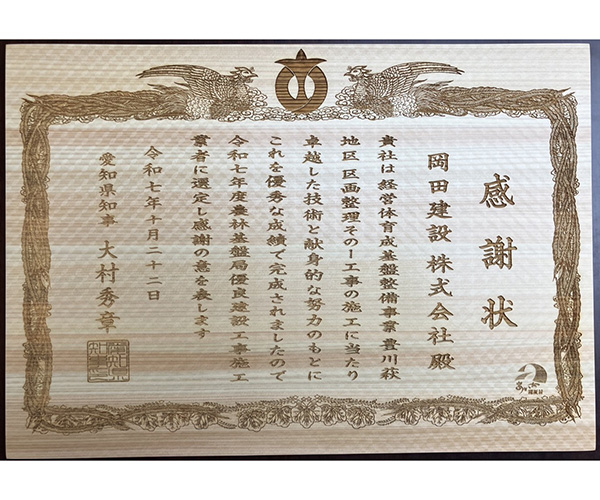 感謝状
岡田建設株式会社殿
貴社は経営体育成基盤整備事業豊川萩
地区区画整理その一工事の施工に当たり
卓越した技術と献身的な努力のもとに
これを優秀な成績で完成されましたので
令和七年度農林基盤局優良建設工事施工
業者に選定し感謝の意を表します
令和七年十月二十二日
愛知県知事 大村秀章